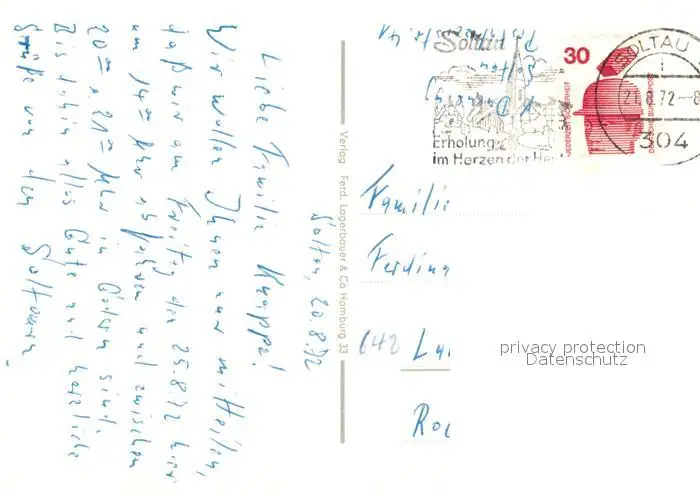 Soltau, 20.8.72
Liebe Familie Knappe!
Wir wollen Ihnen nur mitteilen,
daß wir am Freitag den 25.8.72 hier
um 14 Uhr abfahren und zwischen
20 u. 21 Uhr in sind.
Bis dahin alles Gute und herzliche
Grüße von den Soltauern
Verlag Ferd. Lagerbauer & Co Hamburg 33
Soltau
Erholung
im Herzen der He
30
JEDERZEIT SICHERHEIT
DEUTSCHE BUNDESPOST
SOLTAU
21.8.72-8
304
Familie
Ferdina
642 La
Roc
privacy protection
Datenschutz